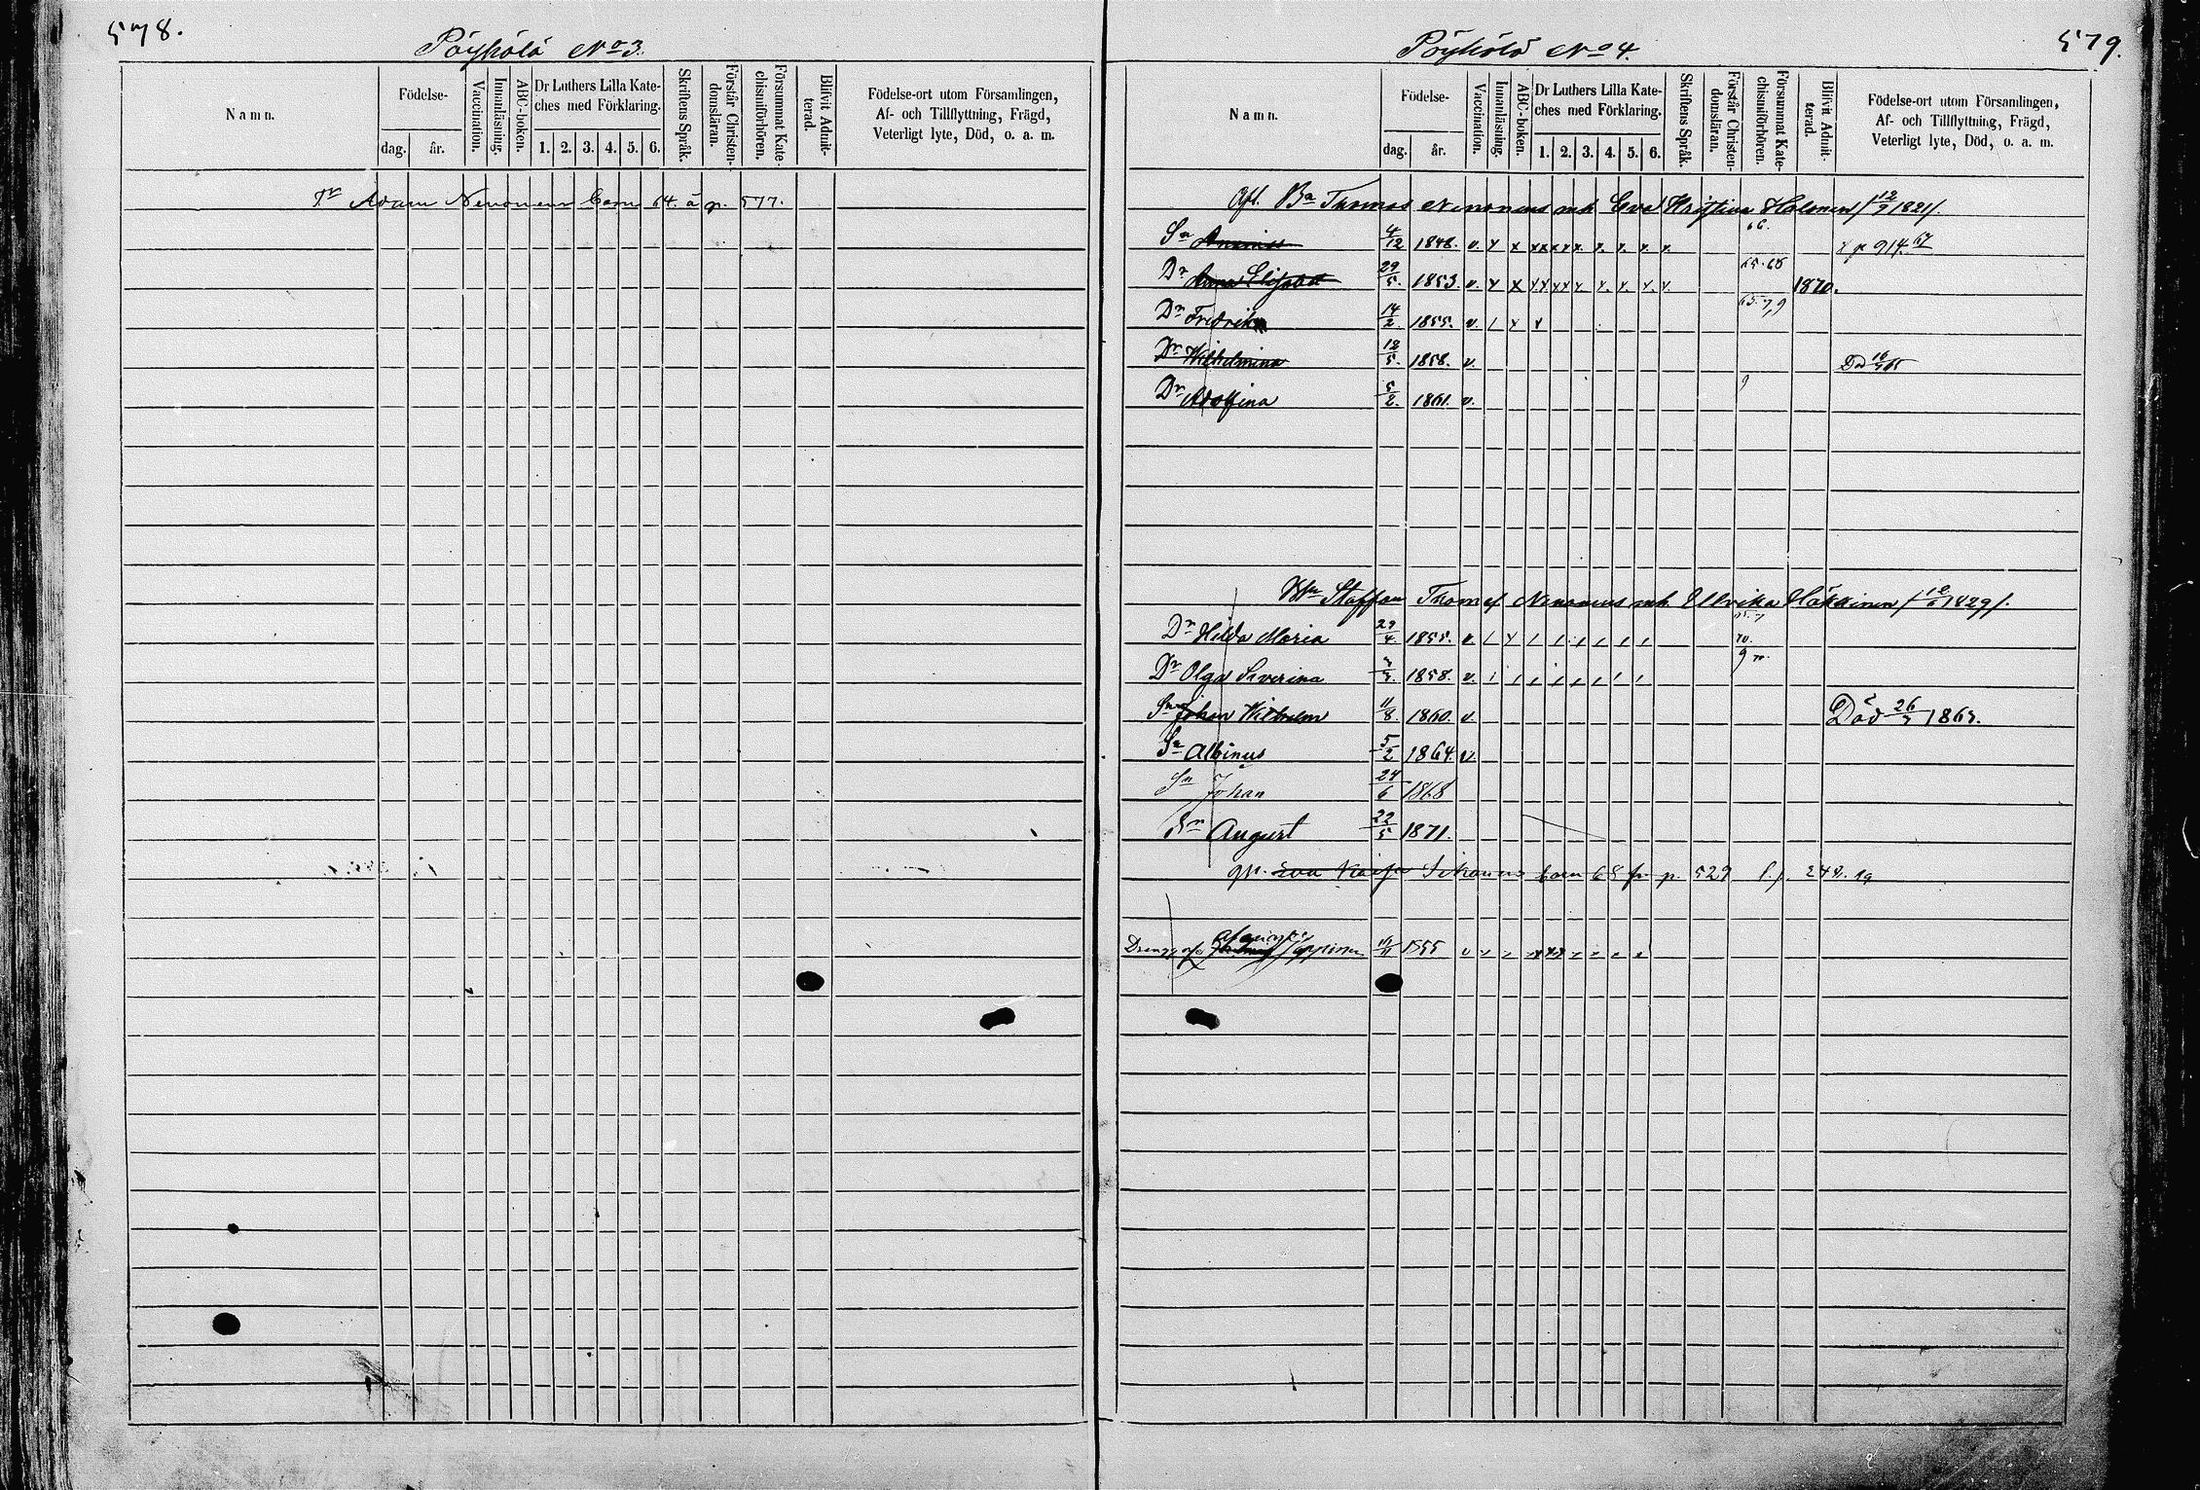 578.
Pöyhölä No 3.
Namn.
Födelse-
dag. år.
Vaccination.
Innanläsning.
ABC-boken.
Dr Luthers Lilla Kate-
ches med Förklaring.
1. 2. 3. 4. 5. 6.
Skriftens Språk.
Förstår Christen-
domsläran.
Försummat Kate-
chismiförhören.
Blifvit Admit-
terad.
Födelse-ort utom Församlingen,
Af- och Tillflyttning, Frägd,
Veterligt lyte, Död, o. a. m.
Adam Nenonens barn 64. å p. 577.
579.
Pöyhölä No 4.
Namn.
Födelse-
dag. år.
Vaccination.
Innanläsning.
ABC-boken.
Dr Luthers Lilla Kate-
ches med Förklaring.
1. 2. 3. 4. 5. 6.
Skriftens Språk.
Förstår Christen-
domsläran.
Försummat Kate-
chismiförhören.
Blifvit Admit-
terad.
Födelse-ort utom Församlingen,
Af- och Tillflyttning, Frägd,
Veterligt lyte, Död, o. a. m.
Thomas Nenonens mh Eva Kristina Holmen 1821
66.
Sn 4/12 1848. v. x x xx xx x. x. x. x. x.
65. 68
Dr Anna Elisabet 29/5. 1853. v. x x xx xx x. x. x. x. x. 1870.
Dr Fredrika 14/2. 1855. v. / x x
Dr Wilhelmina 12/5. 1858. v.
9
Dr Adolfina 5/2. 1861. v.
Staffan Thomaf. Nenonens mh. Ullrika Häkkinen 1829
Dr Hilda Maria 29/4. 1855. v. / x / / / / / /
Dr Olga Severina 1858. v.
Sn Johan Wilhelm 11/8 1860. v. Död 1865.
Sn Albinus 5/2 1864. v.
Sn Johan 24/6 1868
Sn August 22/5 1871.
Kaisa barn 68 fr. p. 529
1855 v